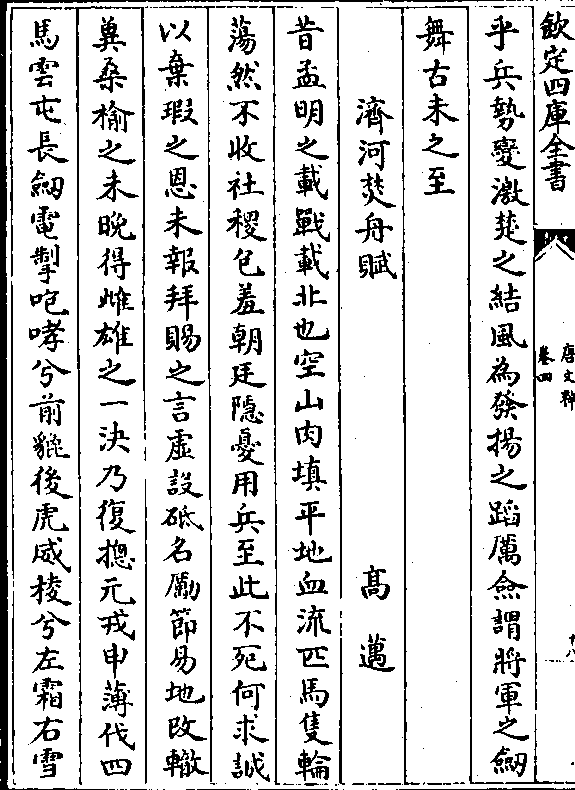 欽定四庫全書
唐文粹
卷四
乎兵勢變激楚之結風為發揚之蹈厲僉謂將軍之劒
舞古未之至
濟河焚舟賦 高邁
昔孟明之載戰載北也空山肉填平地血流匹馬隻輪
蕩然不收社稷包羞朝廷隱憂用兵至此不死何求誠
以棄瑕之恩未報拜賜之言虛設砥名勵節易地改轍
冀桑榆之未晚得雌雄之一決乃復摠元戎申薄伐四
馬雲屯長劒電掣咆哮兮前貔後虎威棱兮左霜右雪